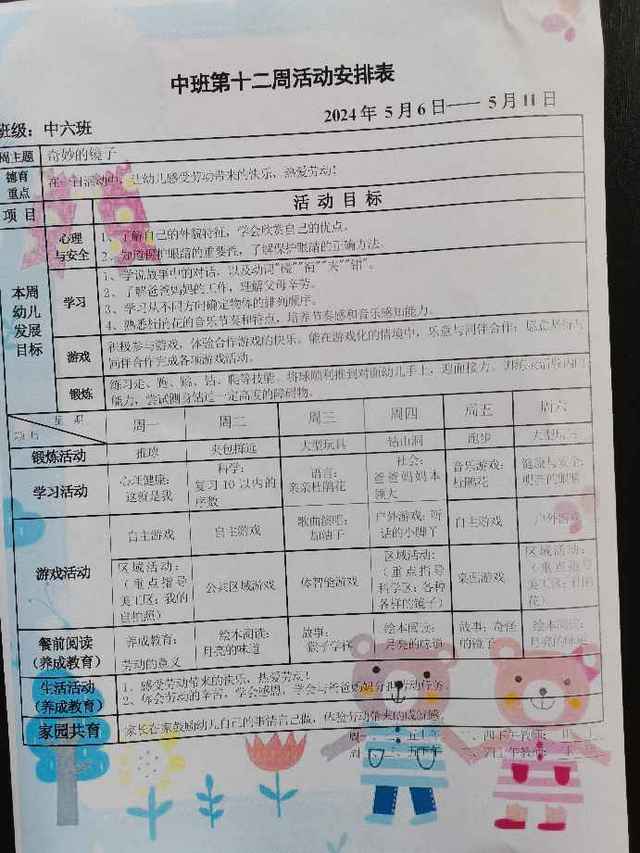 中班第十二周活动安排表
班级：中六班
2024年 5月6日—— 5月11日
周主题
奇妙的镜子
德育
重点
在一日活动中，让幼儿感受劳动带来的快乐，热爱劳动！
项 目
活 动 目 标
本周
幼儿
发展
目标
心理
与安全
1、了解自己的外貌特征，学会欣赏自己的优点。
2、知道保护眼睛的重要性，了解保护眼睛的正确方法。
学习
1、学说故事中的对话，以及动词
2、了解爸爸妈妈的工作，理解父母辛劳。
3、学习从不同方向确定物体的排列顺序。
4、熟悉杜鹃花的音乐节奏和特点，培养节奏感和音乐感知能力。
游戏
积极参与游戏，体验合作游戏的快乐。能在游戏化的情境中，乐意与同伴合作；愿意
同伴合作完成各项游戏活动。
锻炼
练习走、跑、跨、钻、爬等技能。将球顺利推到对面幼儿手上，迎面接力。
能力，尝试侧身钻过一定高度的障碍物。
周一 周二 周三 周四 周五 周六
锻炼活动 推球 夹包掷远 大型玩具 钻山洞 跑步 大型玩具
学习活动
心理健康：
这就是我
科学：
复习10以内的
序数
语言：
亲亲杜鹃花
社会：
爸爸妈妈本
领大
音乐游戏：
杜鹃花
健康与安全：
明亮的眼睛
游戏活动
自主游戏
自主游戏
歌曲演唱：
户外游戏：听
话的小脚丫
自主游戏
户外游戏
区域活动：
（重点指导
美工区：我的
自拍照）
公共区域游戏
体智能游戏
区域活动：
（重点指导
科学区：各种
各样的镜子）
桌面游戏
区域活动：
（重点指导
美工区：杜鹃
花）
餐前阅读
（养成教育）
养成教育：
劳动的意义
绘本阅读：
月亮的味道
故事：
猴子学样
绘本阅读：
月亮的味道
故事：奇怪
的镜子
绘本阅读：
月亮的味道
生活活动
（养成教育）
1、感受劳动带来的快乐，热爱劳动！
2、体会劳动的辛苦，学会感恩，学会与爸爸妈妈分担劳动任务。
家园共育
家长在家鼓励幼儿自己的事情自己做，体验劳动带来的成就感。